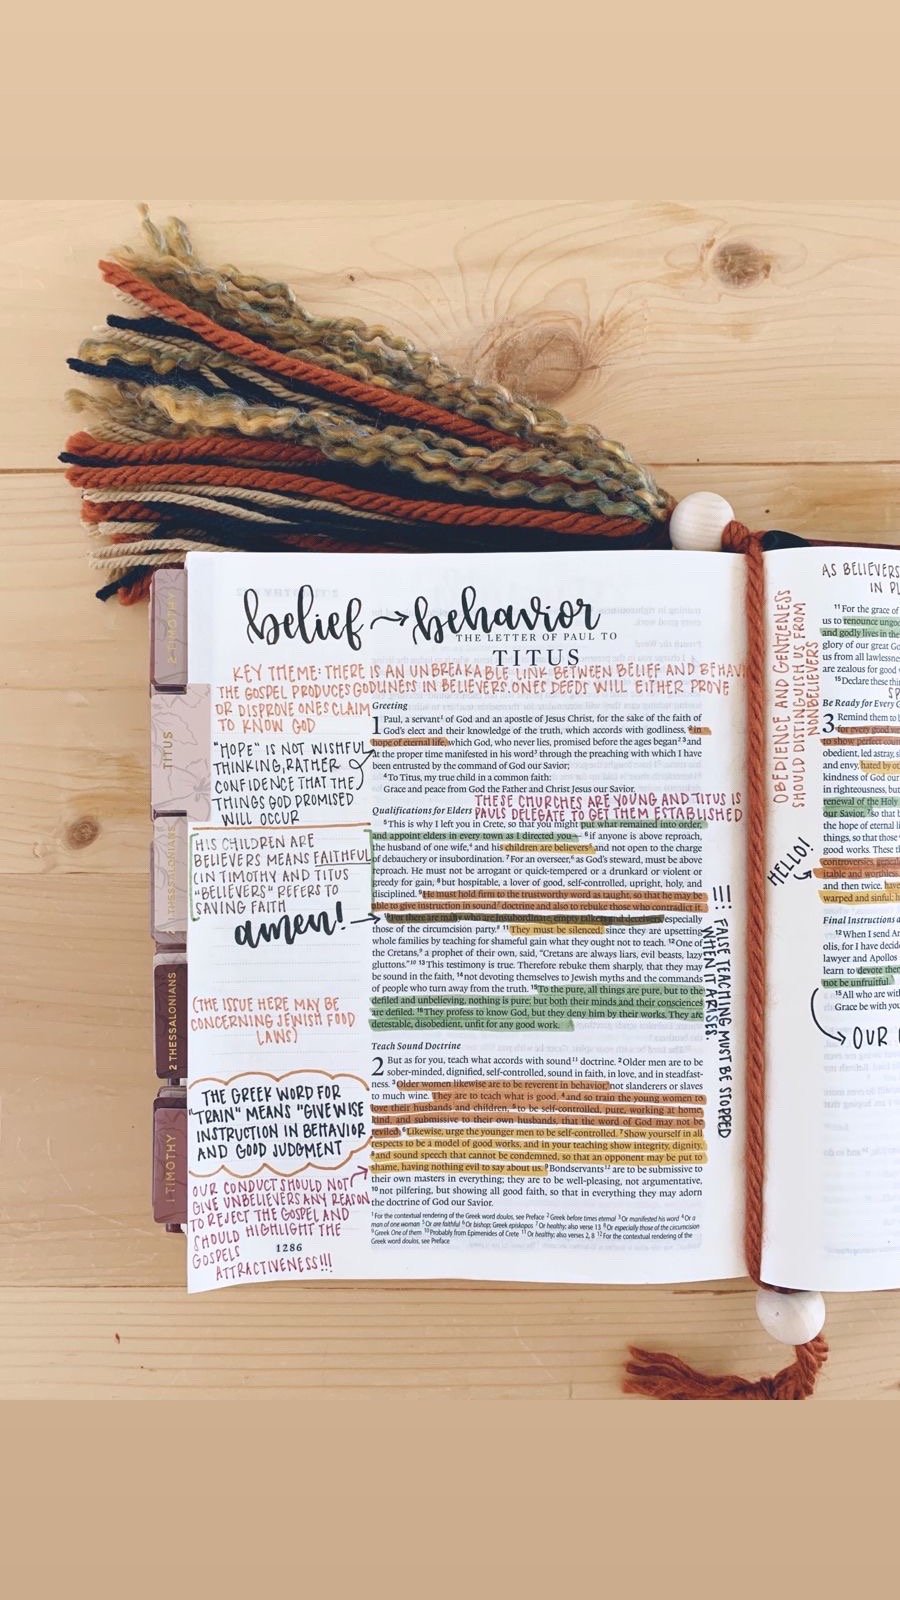 belief → behavior
THE LETTER OF PAUL TO
TITUS
KEY THEME: THERE IS AN UNBREAKABLE LINK BETWEEN BELIEF AND BEHAVI
THE GOSPEL PRODUCES GODLINESS IN BELIEVERS. ONES DEEDS WILL EITHER PROVE
OR DISPROVE ONES CLAIM
TO KNOW GOD
"HOPE" IS NOT WISHFUL
THINKING, RATHER
CONFIDENCE THAT THE
THINGS GOD PROMISED
WILL OCCUR
HIS CHILDREN ARE
BELIEVERS MEANS FAITHFUL
(IN TIMOTHY AND TITUS
"BELIEVERS" REFERS TO
SAVING FAITH
amen!
(THE ISSUE HERE MAY BE
CONCERNING JEWISH FOOD
LAWS)
THE GREEK WORD FOR
"TRAIN" MEANS "GIVE WISE
INSTRUCTION IN BEHAVIOR
AND GOOD JUDGMENT
OUR CONDUCT SHOULD NOT
GIVE UNBELIEVERS ANY REASON
TO REJECT THE GOSPEL AND
SHOULD HIGHLIGHT THE
GOSPELS
ATTRACTIVENESS!!!
1286
2 TIMOTHY
TITUS
2 THESSALONIANS
1 TIMOTHY
Greeting
1 Paul, a servant1 of God and an apostle of Jesus Christ, for the sake of the faith of
God's elect and their knowledge of the truth, which accords with godliness, 2in
hope of eternal life, which God, who never lies, promised before the ages began2 3and
at the proper time manifested in his word3 through the preaching with which I have
been entrusted by the command of God our Savior;
4To Titus, my true child in a common faith:
Grace and peace from God the Father and Christ Jesus our Savior.
THESE CHURCHES ARE YOUNG AND TITUS IS
PAULS DELEGATE TO GET THEM ESTABLISHED
Qualifications for Elders
5This is why I left you in Crete, so that you might put what remained into order,
and appoint elders in every town as I directed you— 6if anyone is above reproach,
the husband of one wife,4 and his children are believers5 and not open to the charge
of debauchery or insubordination. 7For an overseer,6 as God's steward, must be above
reproach. He must not be arrogant or quick-tempered or a drunkard or violent or
greedy for gain, 8but hospitable, a lover of good, self-controlled, upright, holy, and
disciplined. 9He must hold firm to the trustworthy word as taught, so that he may be
able to give instruction in sound7 doctrine and also to rebuke those who contradict it.
10For there are many who are insubordinate, empty talkers and deceivers, especially
those of the circumcision party.8 11They must be silenced, since they are upsetting
whole families by teaching for shameful gain what they ought not to teach. 12One of
the Cretans,9 a prophet of their own, said, "Cretans are always liars, evil beasts, lazy
gluttons."10 13This testimony is true. Therefore rebuke them sharply, that they may
be sound in the faith, 14not devoting themselves to Jewish myths and the commands
of people who turn away from the truth. 15To the pure, all things are pure, but to the
defiled and unbelieving, nothing is pure; but both their minds and their consciences
are defiled. 16They profess to know God, but they deny him by their works. They are
detestable, disobedient, unfit for any good work.
Teach Sound Doctrine
2 But as for you, teach what accords with sound11 doctrine. 2Older men are to be
sober-minded, dignified, self-controlled, sound in faith, in love, and in steadfast-
ness. 3Older women likewise are to be reverent in behavior, not slanderers or slaves
to much wine. They are to teach what is good, 4and so train the young women to
love their husbands and children, 5to be self-controlled, pure, working at home,
kind, and submissive to their own husbands, that the word of God may not be
reviled. 6Likewise, urge the younger men to be self-controlled. 7Show yourself in all
respects to be a model of good works, and in your teaching show integrity, dignity,
8and sound speech that cannot be condemned, so that an opponent may be put to
shame, having nothing evil to say about us. 9Bondservants12 are to be submissive to
their own masters in everything; they are to be well-pleasing, not argumentative,
10not pilfering, but showing all good faith, so that in everything they may adorn
the doctrine of God our Savior.
1 For the contextual rendering of the Greek word doulos, see Preface 2 Greek before times eternal 3 Or manifested his word 4 Or a
man of one woman 5 Or are faithful 6 Or bishop; Greek episkopos 7 Or healthy; also verse 13 8 Or especially those of the circumcision
9 Greek One of them 10 Probably from Epimenides of Crete 11 Or healthy; also verses 2, 8 12 For the contextual rendering of the
Greek word doulos, see Preface
!!! FALSE TEACHING MUST BE STOPPED
WHEN IT ARISES.
OBEDIENCE AND GENTLENESS
SHOULD DISTINGUISH US FROM
NONBELIEVERS
AS BELIEVERS
IN PL
11For the grace of
us to renounce ungod
and godly lives in the
glory of our great Go
us from all lawlessne
are zealous for good
15Declare these thi
SP
Be Ready for Every G
3 Remind them to b
for every good w
to show perfect cour
obedient, led astray, sl
and envy, hated by ot
kindness of God our
in righteousness, but
renewal of the Holy
our Savior, 7so that b
the hope of eternal li
things, so that those
good works. These th
controversies, geneal
itable and worthless.
and then twice, have
warped and sinful; h
HELLO!
Final Instructions a
12When I send Ar
olis, for I have decide
lawyer and Apollos
learn to devote them
not be unfruitful.
15All who are with
Grace be with you
OUR